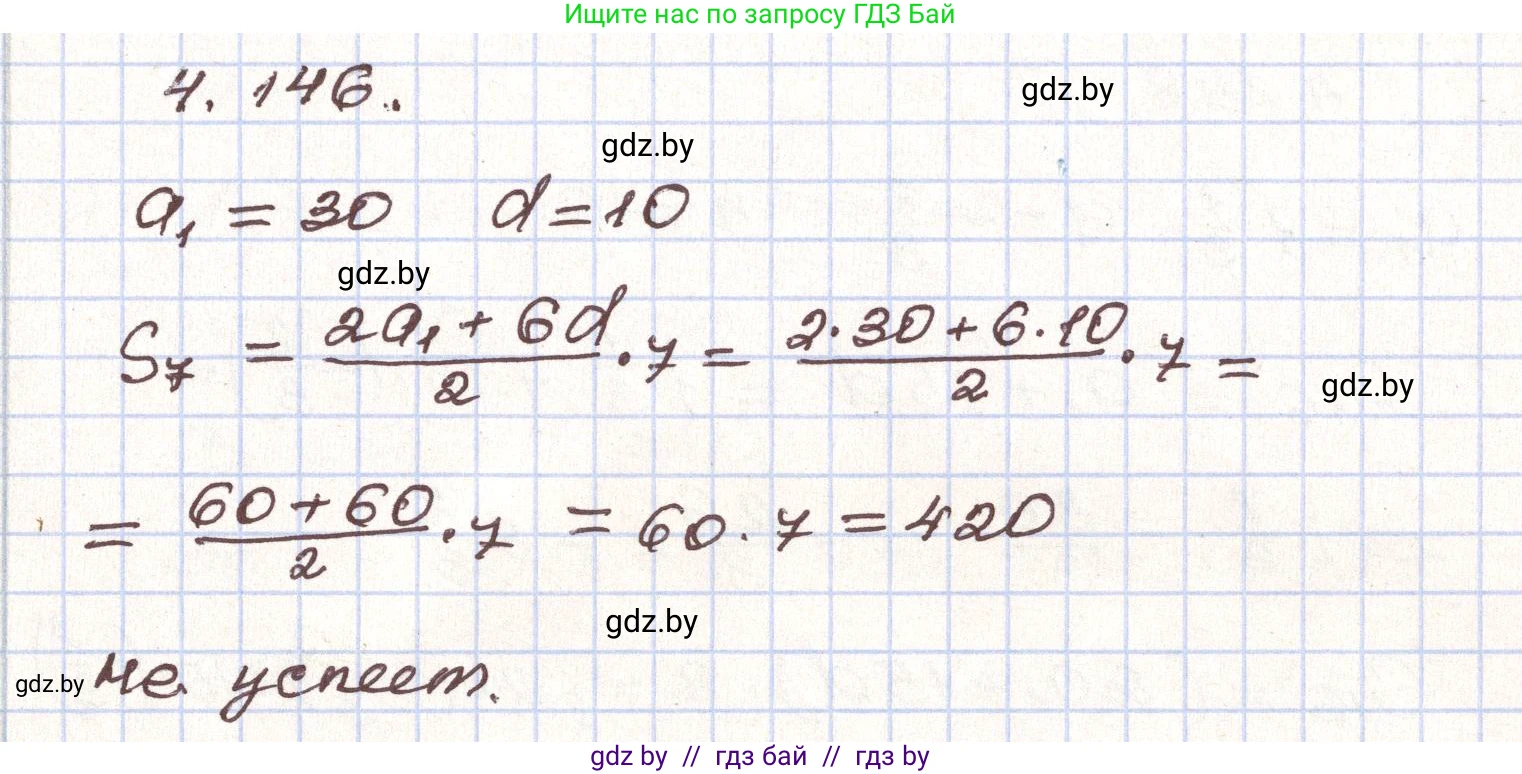 Ищите нас по запросу ГДЗ Бай
4. 146.
gdz.by
gdz.by
a₁ = 30 d = 10
gdz.by
S₇ = (2a₁ + 6d)/2 · 7 = (2·30 + 6·10)/2 · 7 =
gdz.by
= (60 + 60)/2 · 7 = 60 · 7 = 420
gdz.by
gdz.by
не успеет.
gdz by // гдз бай // гдз by